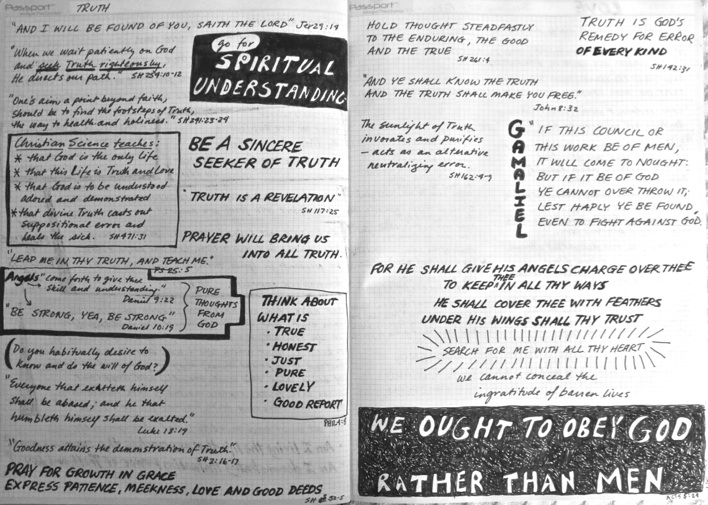 Passport
TRUTH
"AND I WILL BE FOUND OF YOU, SAITH THE LORD" Jer 29:14
"When we wait patiently on God
and seek Truth righteously,
He directs our path." SH 254:10-12
"One's aim, a point beyond faith,
should be to find the footsteps of Truth,
the way to health and holiness." SH 241:23-24
Christian Science teaches:
* that God is the only Life
* that this Life is Truth and Love
* that God is to be understood
adored and demonstrated
* that divine Truth casts out
suppositional error and
heals the sick. SH 471:31
"LEAD ME IN THY TRUTH, AND TEACH ME."
PS 25:5
Angels "come forth to give thee
skill and understanding."
Daniel 9:22
"BE STRONG, YEA, BE STRONG"
Daniel 10:19
PURE
THOUGHTS
FROM
GOD
(Do you habitually desire to
know and do the will of God?)
"Everyone that exalteth himself
shall be abased; and he that
humbleth himself shall be exalted."
Luke 18:14
"Goodness attains the demonstration of Truth."
SH 2:16-17
PRAY FOR GROWTH IN GRACE
EXPRESS PATIENCE, MEEKNESS, LOVE AND GOOD DEEDS
go for
SPIRITUAL
UNDERSTANDING
BE A SINCERE
SEEKER OF TRUTH
"TRUTH IS A REVELATION"
SH 117:25
PRAYER WILL BRING US
INTO ALL TRUTH.
THINK ABOUT
WHAT IS
· TRUE
· HONEST
· JUST
· PURE
· LOVELY
· GOOD REPORT
Passport
HOLD THOUGHT STEADFASTLY
TO THE ENDURING, THE GOOD
AND THE TRUE
SH 261:4
TRUTH IS GOD'S
REMEDY FOR ERROR
OF EVERY KIND
SH 142:31
"AND YE SHALL KNOW THE TRUTH
AND THE TRUTH SHALL MAKE YOU FREE."
John 8:32
The sunlight of Truth
invorates and purifies
- acts as an alterative
neutralizing error.
GAMALIEL
"IF THIS COUNCIL OR
THIS WORK BE OF MEN,
IT WILL COME TO NOUGHT:
BUT IF IT BE OF GOD
YE CANNOT OVER THROW IT;
LEST HAPLY YE BE FOUND
EVEN TO FIGHT AGAINST GOD."
FOR HE SHALL GIVE HIS ANGELS CHARGE OVER THEE
TO KEEP THEE IN ALL THY WAYS
HE SHALL COVER THEE WITH FEATHERS
UNDER HIS WINGS SHALL THY TRUST
SEARCH FOR ME WITH ALL THY HEART
we cannot conceal the
ingratitude of barren lives
WE OUGHT TO OBEY GOD
RATHER THAN MEN